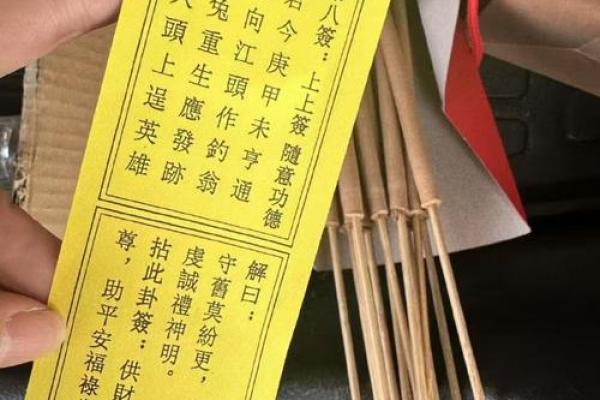 八簽：上上簽 隨意功德
君今庚甲未亨通
向江頭作釣翁
兔重生應發跡
人頭上逞英雄
解曰：
守舊莫紛更，
虔誠禮神明。
拈此卦簽：供財
尊，助平安福祿